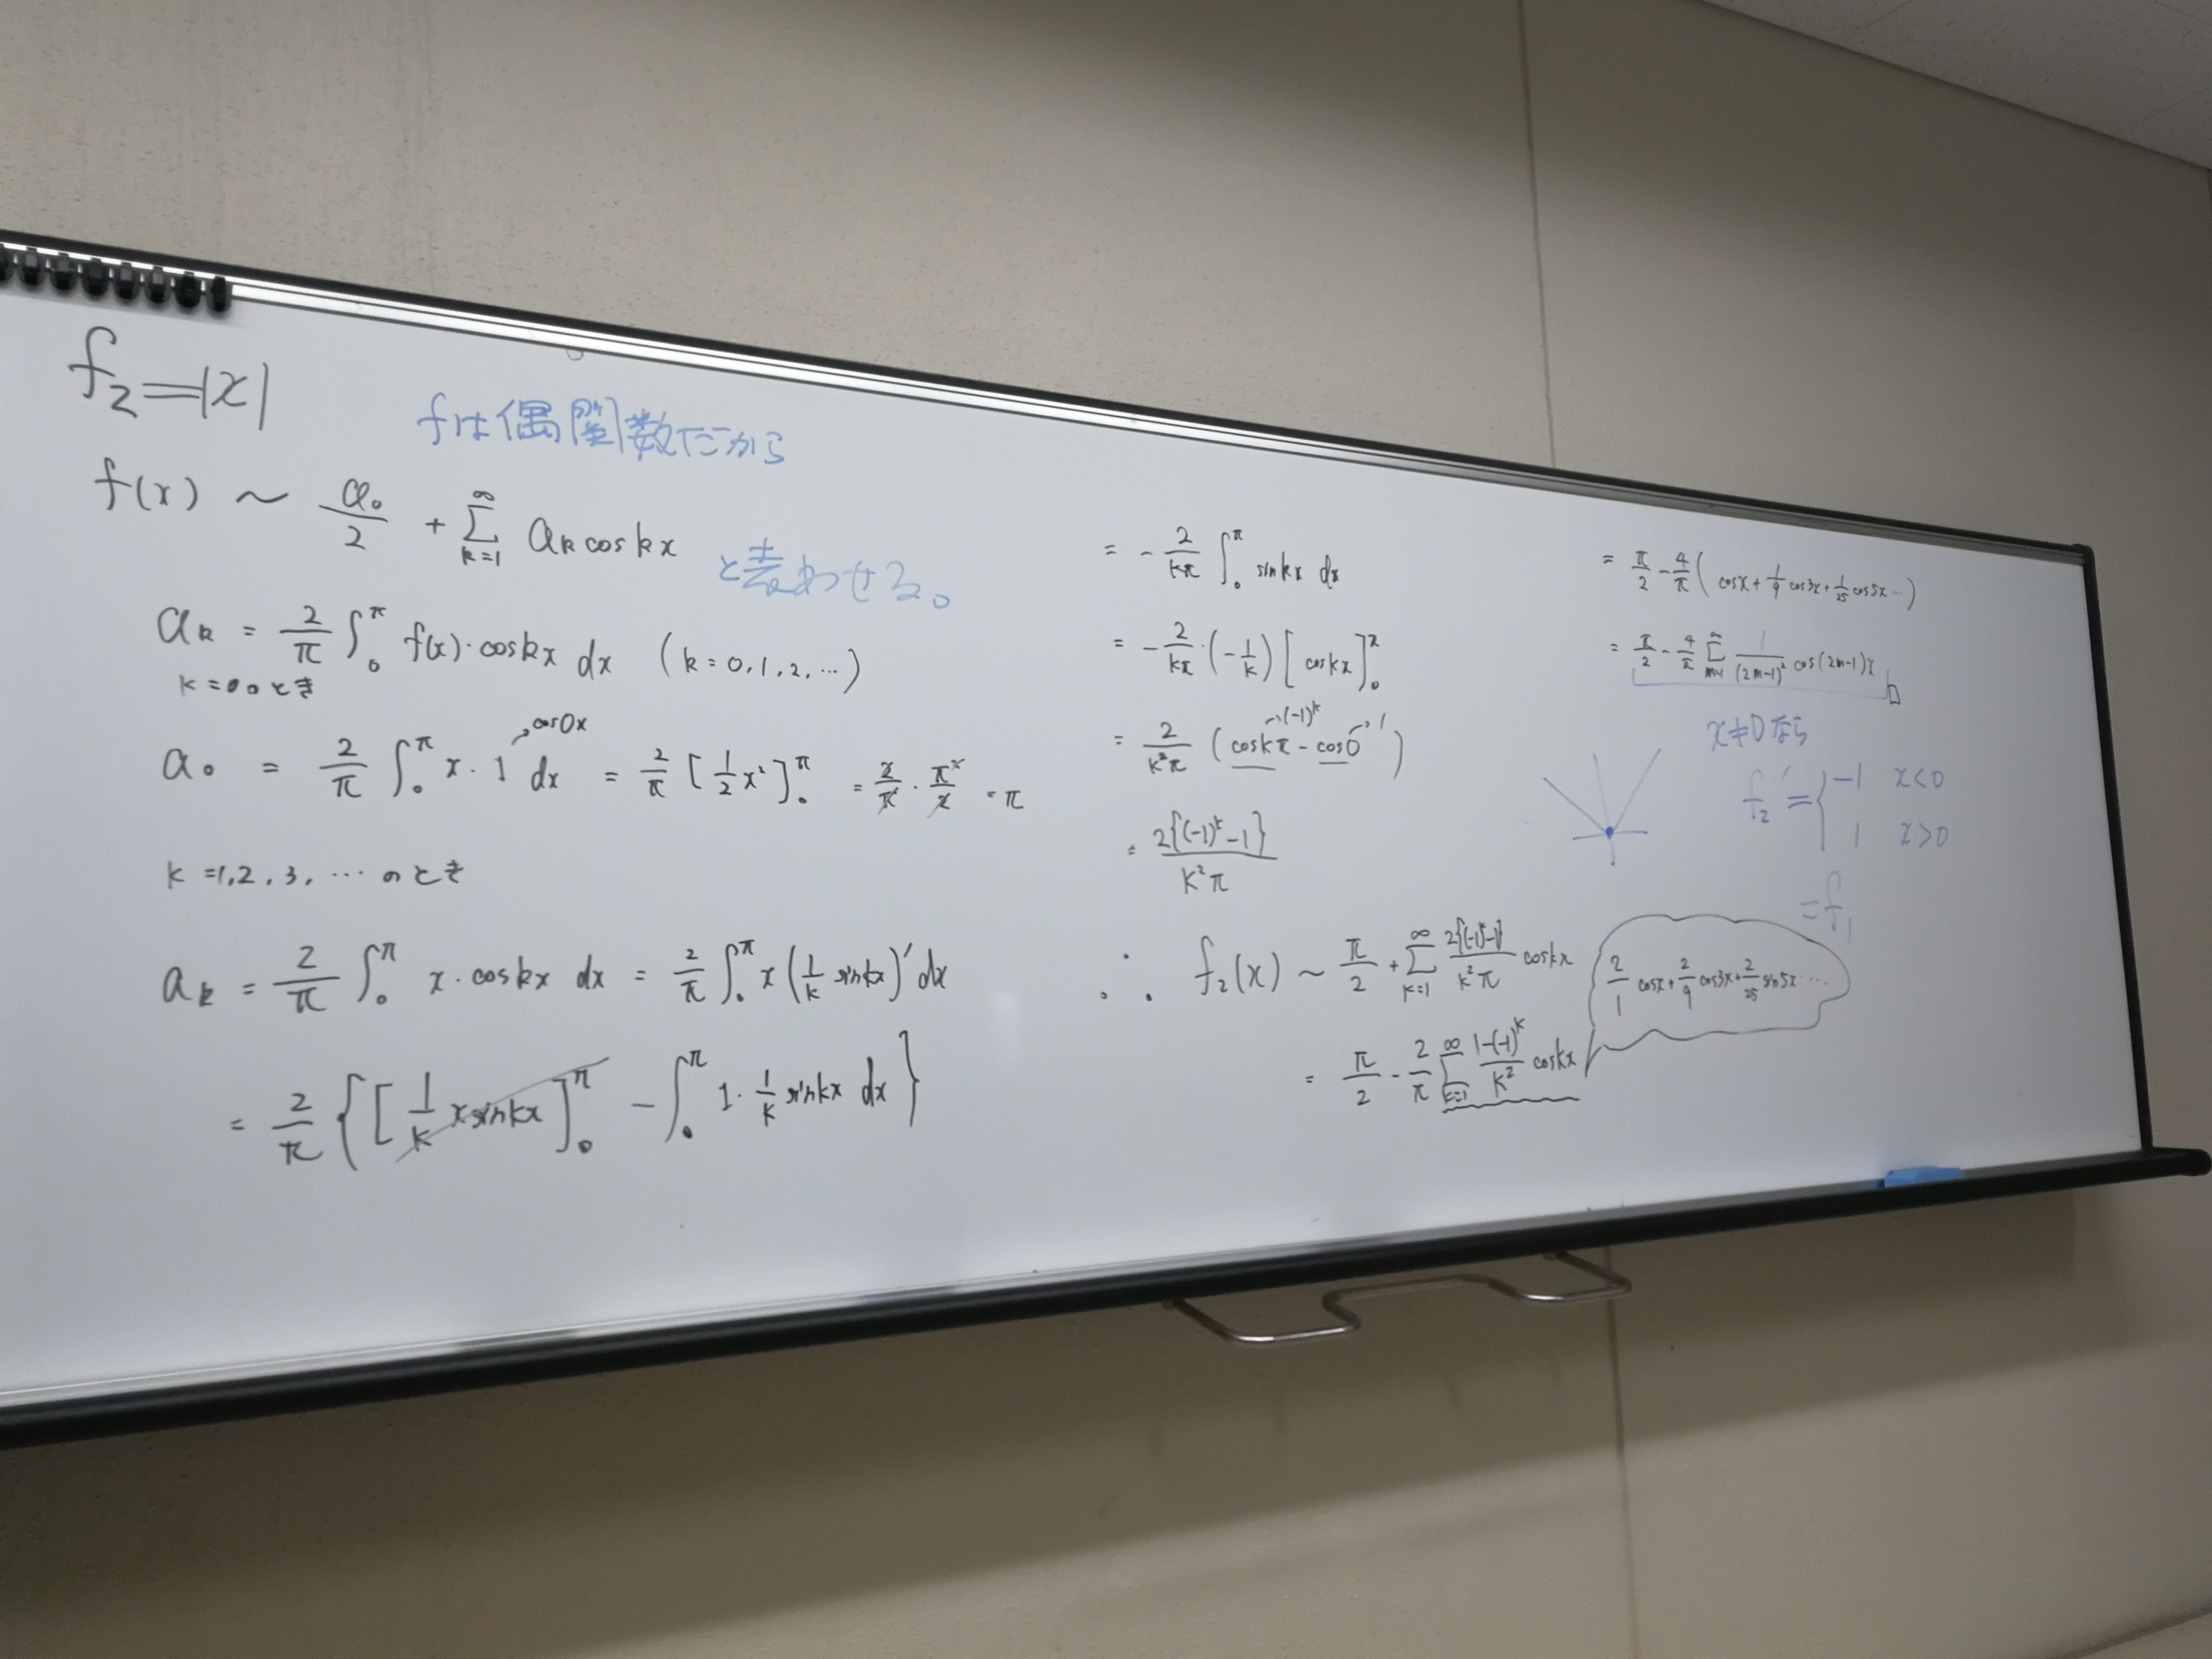 f₂=|x|
fは偶関数だから
f(x) ～ a₀/2 + Σ_{k=1}^{∞} aₖ cos kx と表わせる。
aₖ = 2/π ∫₀^π f(x)・cos kx dx (k=0,1,2,…)
k=0のとき
a₀ = 2/π ∫₀^π x・1 dx = 2/π [1/2 x²]₀^π = 2/π・π²/2 = π
cos0x
k=1,2,3,…のとき
aₖ = 2/π ∫₀^π x・cos kx dx = 2/π ∫₀^π x (1/k sin kx)′ dx
= 2/π { [1/k x sin kx]₀^π − ∫₀^π 1・1/k sin kx dx }
= − 2/kπ ∫₀^π sin kx dx
= − 2/kπ・(−1/k) [cos kx]₀^π
→(-1)^k →1
= 2/k²π (cos kπ − cos 0)
= 2{(-1)^k −1}/k²π
∴ f₂(x) ～ π/2 + Σ_{k=1}^{∞} 2{(-1)^k−1}/k²π cos kx
= π/2 − 2/π Σ_{k=1}^{∞} 1−(-1)^k/k² cos kx
2/1 cosx + 2/9 cos3x + 2/25 sin5x …
= π/2 − 4/π ( cosx + 1/9 cos3x + 1/25 cos5x …)
= π/2 − 4/π Σ_{m=1}^{∞} 1/(2m−1)² cos(2m−1)x □
x≠0なら
f₂′ = { −1 x<0
1 x>0
= f₁